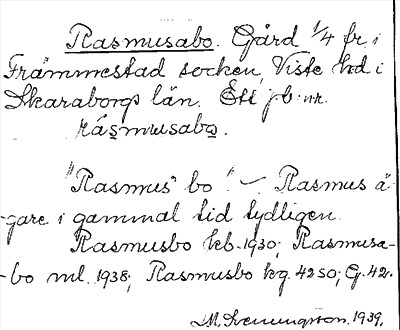 Rasmusabo. Gård 1/4 fr. i
Främmestad socken, Viste hd i
Skaraborgs län. Ett jb. nr.
rásmusabo.
"Rasmus' bo". – Rasmus ä-
gare i gammal tid tydligen.
Rasmusbo hcb. 1930; Rasmusa-
-bo ml. 1938; Rasmusbo kg. 4250; G. 42.
1939.